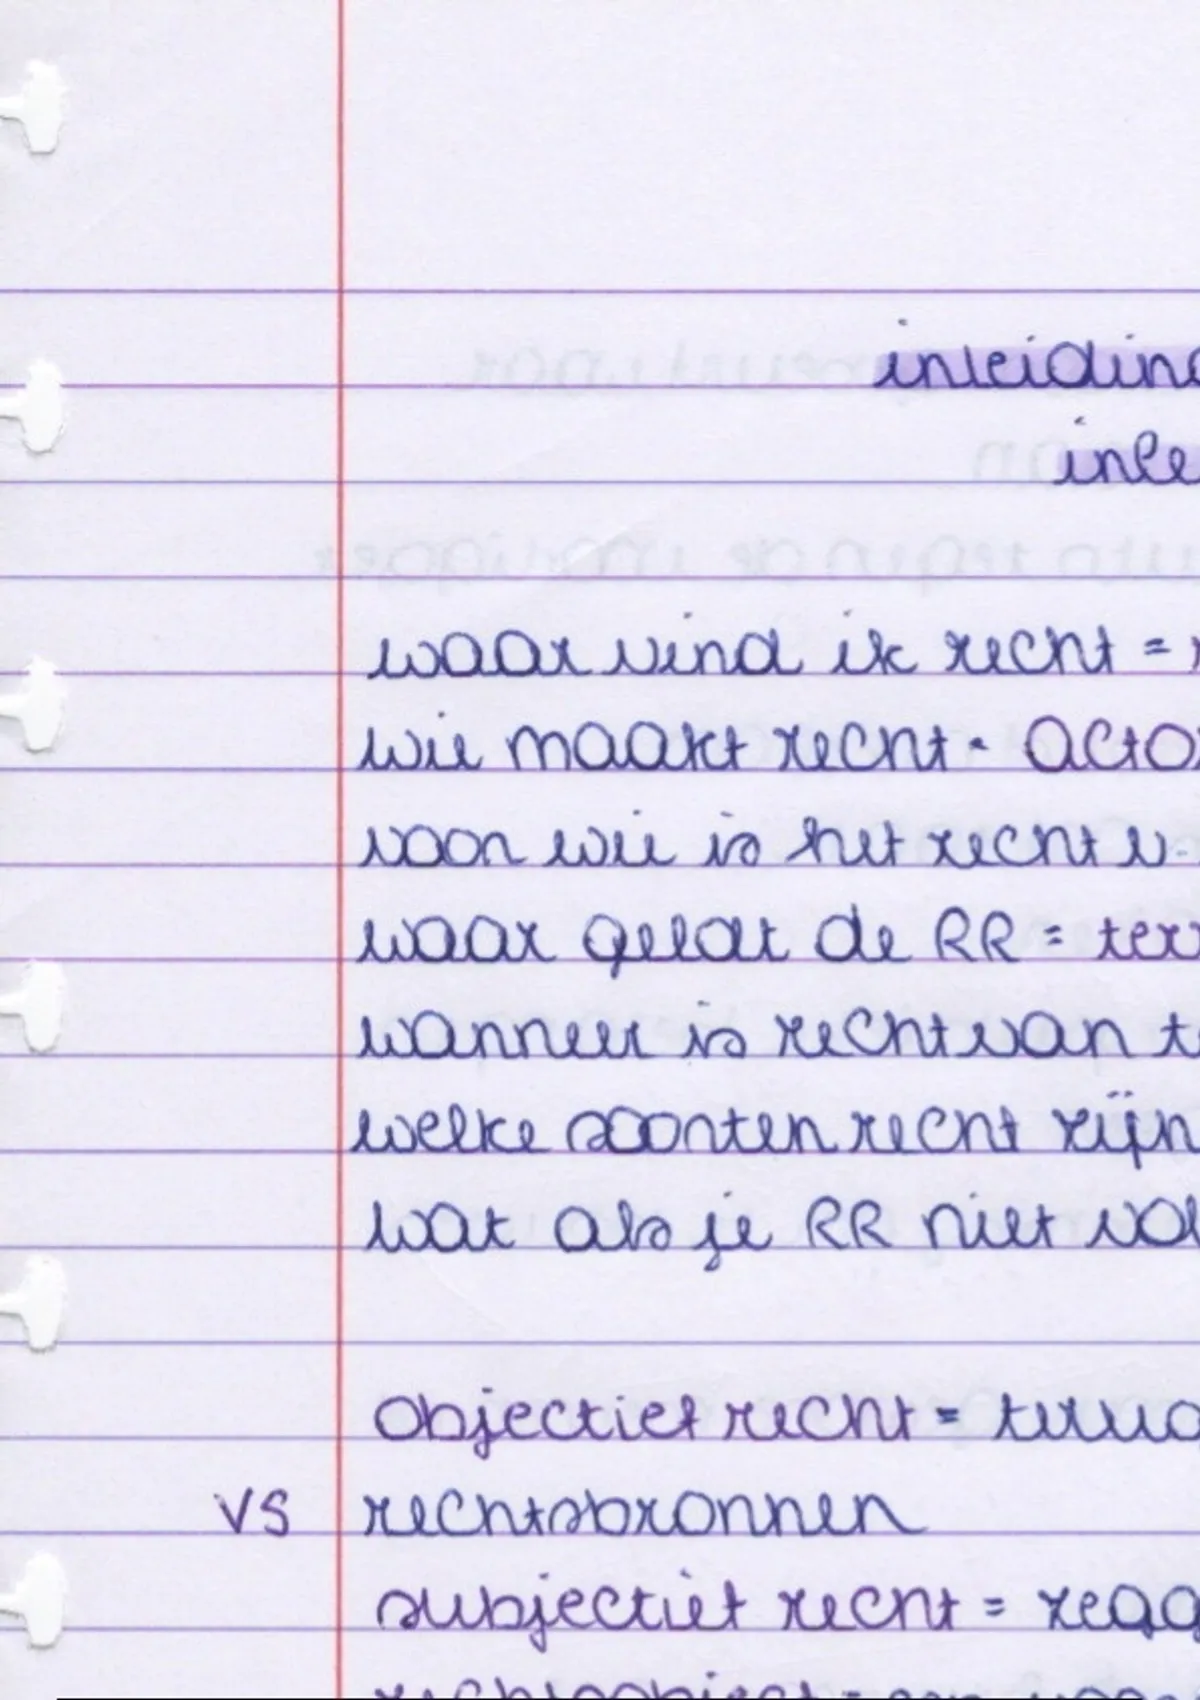 inleidin
inle
waar vind ik recht =
wie maakt recht = acto
voor wie is het recht v
waar geldt de RR = terr
wanneer is recht van t
welke soorten recht zijn
wat als je RR niet vol
objectief recht = terug
VS rechtsbronnen
subjectief recht = zegg